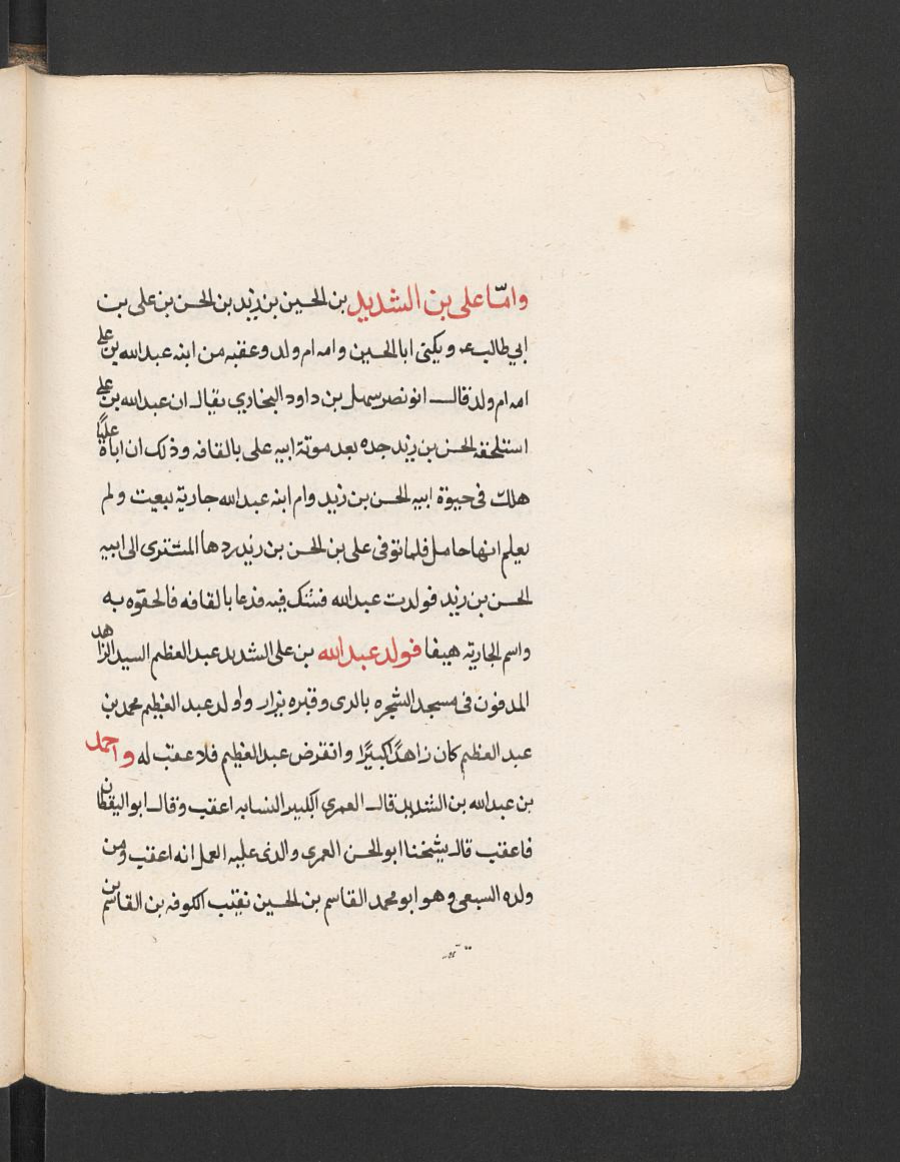 وامّا علي بن الشديد بن الحسين بن زيد بن الحسن بن علي بن
ابي طالب ع ويكنى ابا الحسين وامه ام ولد وعقبه من ابنه عبدالله بن علي
امه ام ولد قال ابو نصر سهل بن داود البخاري يقال ان عبدالله بن علي
استلحقه الحسن بن زيد جده بعد موتة ابيه علي بالقافه وذلك ان اباه عليًا
هلك في حيوة ابيه الحسن بن زيد وام ابنه عبدالله جارية بيعت ولم
يعلم انها حامل فلما توفي علي بن الحسن بن زيد ردها المشترى الى ابيه
الحسن بن زيد فولدت عبدالله فشك فيه فدعا بالقافه فالحقوه به
واسم الجارية هيفا فولد عبدالله بن علي الشديد عبد العظيم السيد الزاهد
المدفون في مسجد الشجره بالري وقبره يزار واولد عبد العظيم محمد بن
عبد العظيم كان زاهدًا كبيرًا وانقرض عبد العظيم فلا عقب له واحمد
بن عبدالله بن الشديد قال العمري الكبير النسابه اعقب وقال ابو اليقظان
فاعقب قال شيخنا ابو الحسن العمري والذي عليه العمل انه اعقب ومن
ولده السبعي وهو ابو محمد القاسم بن الحسين نقيب الكوفه بن القاسم بن